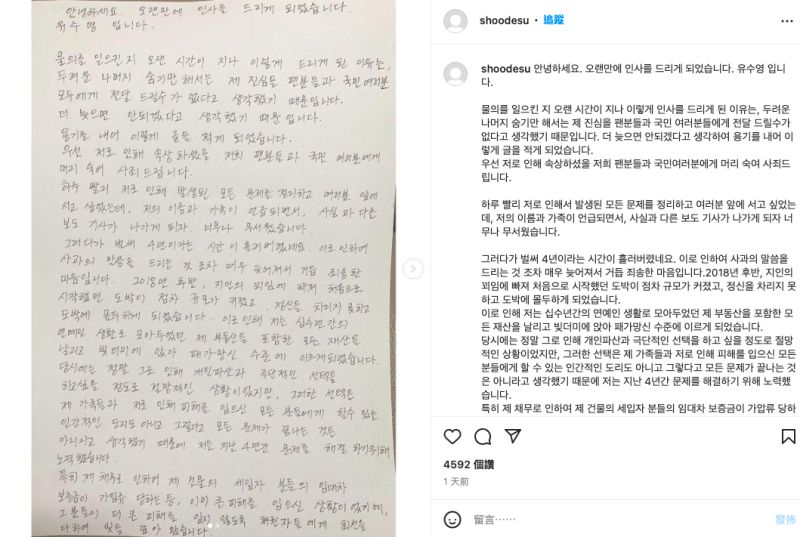 안녕하세요. 오랜만에 인사를 드리게 되었습니다.
유수영 입니다.
물의를 일으킨지 오랜 시간이 지나 이렇게 드리게 된 이유는,
두려운 나머지 숨기만 해서는 제 진심을 팬분들과 국민 여러분
모두에게 전달 드릴수가 없다고 생각했기 때문입니다.
더 늦으면 안되겠다고 생각했기 때문입니다.
용기를 내어 이렇게 글을 적게 되었습니다.
우선 저로 인해 속상하셨을 저희 팬분들과 국민 여러분에게
머리 숙여 사죄드립니다.
하루 빨리 저로 인해 발생된 모든 문제를 정리하고 여러분 앞에
서고 싶었는데, 저의 이름과 가족이 언급되면서, 사실과 다른
보도 기사가 나가게 되자, 너무나 무서웠습니다.
그러다가 벌써 4년이라는 시간이 흘러버렸네요. 이로 인하여
사과의 말씀을 드리는 것 조차 매우 늦어져서 거듭 죄송한
마음입니다. 2018년 후반, 지인의 꾀임에 빠져 처음으로
시작했던 도박이 점차 규모가 커졌고, 정신을 차리지 못하고
도박에 몰두하게 되었습니다. 이로 인해 저는 십수년간의
연예인 생활로 모아두었던 제 부동산을 포함한 모든 재산을
날리고 빚더미에 앉아 패가망신 수준에 이르게되었습니다.
당시에는 정말 그로 인해 개인파산과 극단적인 선택을
하고싶을 정도로 절망적인 상황이었지만, 그러한 선택은
제 가족들과 저로 인해 피해를 입으신 모든 분들에게 할수 있는
인간적인 도리도 아니고 그렇다고 모든 문제가 끝나는 것은
아니라고 생각했기 때문에 저는 지난 4년간 문제를 해결하기위해
노력했습니다.
특히 제 채무로 인하여 제 건물의 세입자 분들의 임대차
보증금이 가압류 당하는 등, 이미 큰 피해를 입으신 상황이었기에,
그분들이 더 큰 피해를 입지 않도록 채권자들에게 최선을
다하여 빚을 갚아 왔습니다.
shoodesu · 追蹤
shoodesu 안녕하세요. 오랜만에 인사를 드리게 되었습니다. 유수영 입니
다.
물의를 일으킨 지 오랜 시간이 지나 이렇게 인사를 드리게 된 이유는, 두려운
나머지 숨기만 해서는 제 진심을 팬분들과 국민 여러분들에게 전달 드릴수가
없다고 생각했기 때문입니다. 더 늦으면 안되겠다고 생각하여 용기를 내어 이
렇게 글을 적게 되었습니다.
우선 저로 인해 속상하셨을 저희 팬분들과 국민여러분에게 머리 숙여 사죄드
립니다.
하루 빨리 저로 인해서 발생된 모든 문제를 정리하고 여러분 앞에 서고 싶었는
데, 저의 이름과 가족이 언급되면서, 사실과 다른 보도 기사가 나가게 되자 너
무나 무서웠습니다.
그러다가 벌써 4년이라는 시간이 흘러버렸네요. 이로 인하여 사과의 말씀을
드리는 것 조차 매우 늦어져서 거듭 죄송한 마음입니다.2018년 후반, 지인의
꾀임에 빠져 처음으로 시작했던 도박이 점차 규모가 커졌고, 정신을 차리지 못
하고 도박에 몰두하게 되었습니다.
이로 인해 저는 십수년간의 연예인 생활로 모아두었던 제 부동산을 포함한 모
든 재산을 날리고 빚더미에 앉아 패가망신 수준에 이르게 되었습니다.
당시에는 정말 그로 인해 개인파산과 극단적인 선택을 하고 싶을 정도로 절망
적인 상황이었지만, 그러한 선택은 제 가족들과 저로 인해 피해를 입으신 모든
분들에게 할 수 있는 인간적인 도리도 아니고 그렇다고 모든 문제가 끝나는 것
은 아니라고 생각했기 때문에 저는 지난 4년간 문제를 해결하기 위해 노력했
습니다.
특히 제 채무로 인하여 제 건물의 세입자 분들의 임대차 보증금이 가압류 당하
4592 個讚
1 天前
留言⋯⋯
發佈